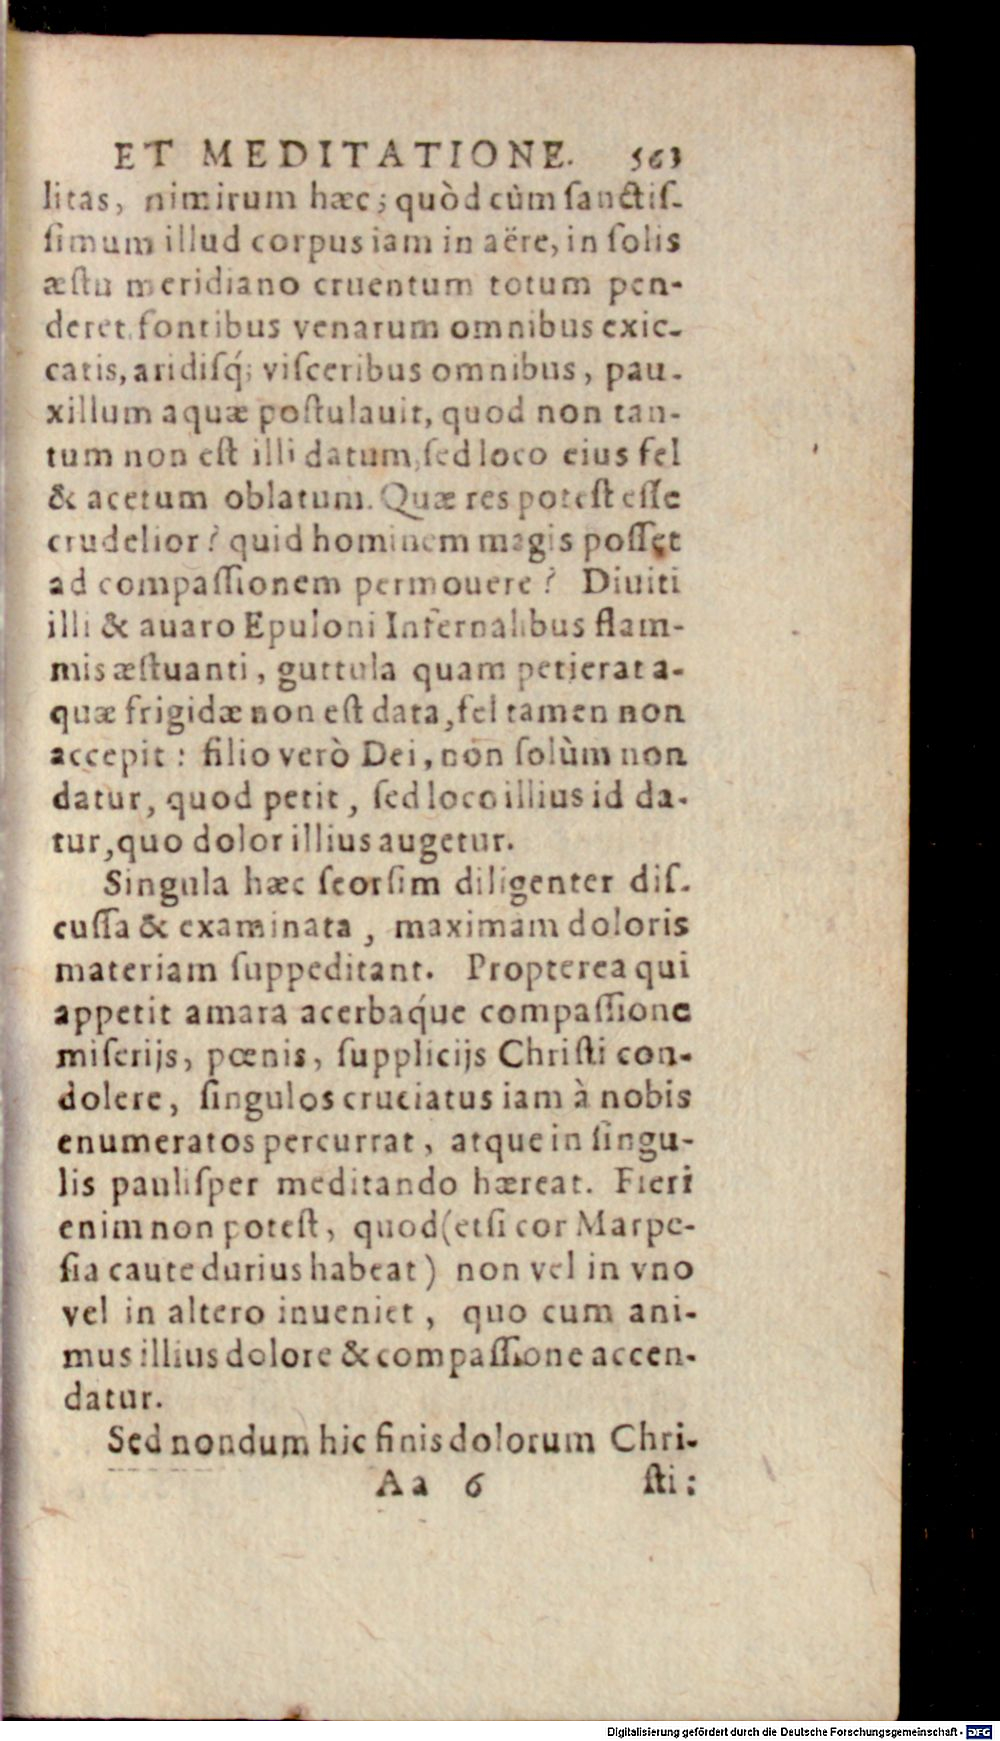 ET MEDITATIONE. 563
litas, nimirum hæc; quòd cùm ſanctiſ-
ſimum illud corpus iam in aëre, in ſolis
æſtu meridiano cruentum totum pen-
deret, fontibus venarum omnibus exic-
catis, aridiſq́; viſceribus omnibus, pau-
xillum aquæ poſtulauit, quod non tan-
tum non eſt illi datum, ſed loco eius fel
& acetum oblatum. Quæ res poteſt eſſe
crudelior? quid hominem magis poſſet
ad compaſſionem permouere? Diuiti
illi & auaro Epuloni Infernalibus flam-
mis æſtuanti, guttula quam petierat a-
quæ frigidæ non eſt data, fel tamen non
accepit: filio verò Dei, non ſolùm non
datur, quod petit, ſed loco illius id da-
tur, quo dolor illius augetur.
Singula hæc ſeorſim diligenter diſ-
cuſſa & examinata, maximam doloris
materiam ſuppeditant. Propterea qui
appetit amara acerbaq́ue compaſſione
miſerijs, pœnis, ſupplicijs Chriſti con-
dolere, ſingulos cruciatus iam à nobis
enumeratos percurrat, atque in ſingu-
lis pauliſper meditando hæreat. Fieri
enim non poteſt, quod (etſi cor Marpe-
ſia caute durius habeat) non vel in vno
vel in altero inueniet, quo cum ani-
mus illius dolore & compaſſione accen-
datur.
Sed nondum hic finis dolorum Chri-
Aa 6 ſti:
Digitalisierung gefördert durch die Deutsche Forschungsgemeinschaft - DFG